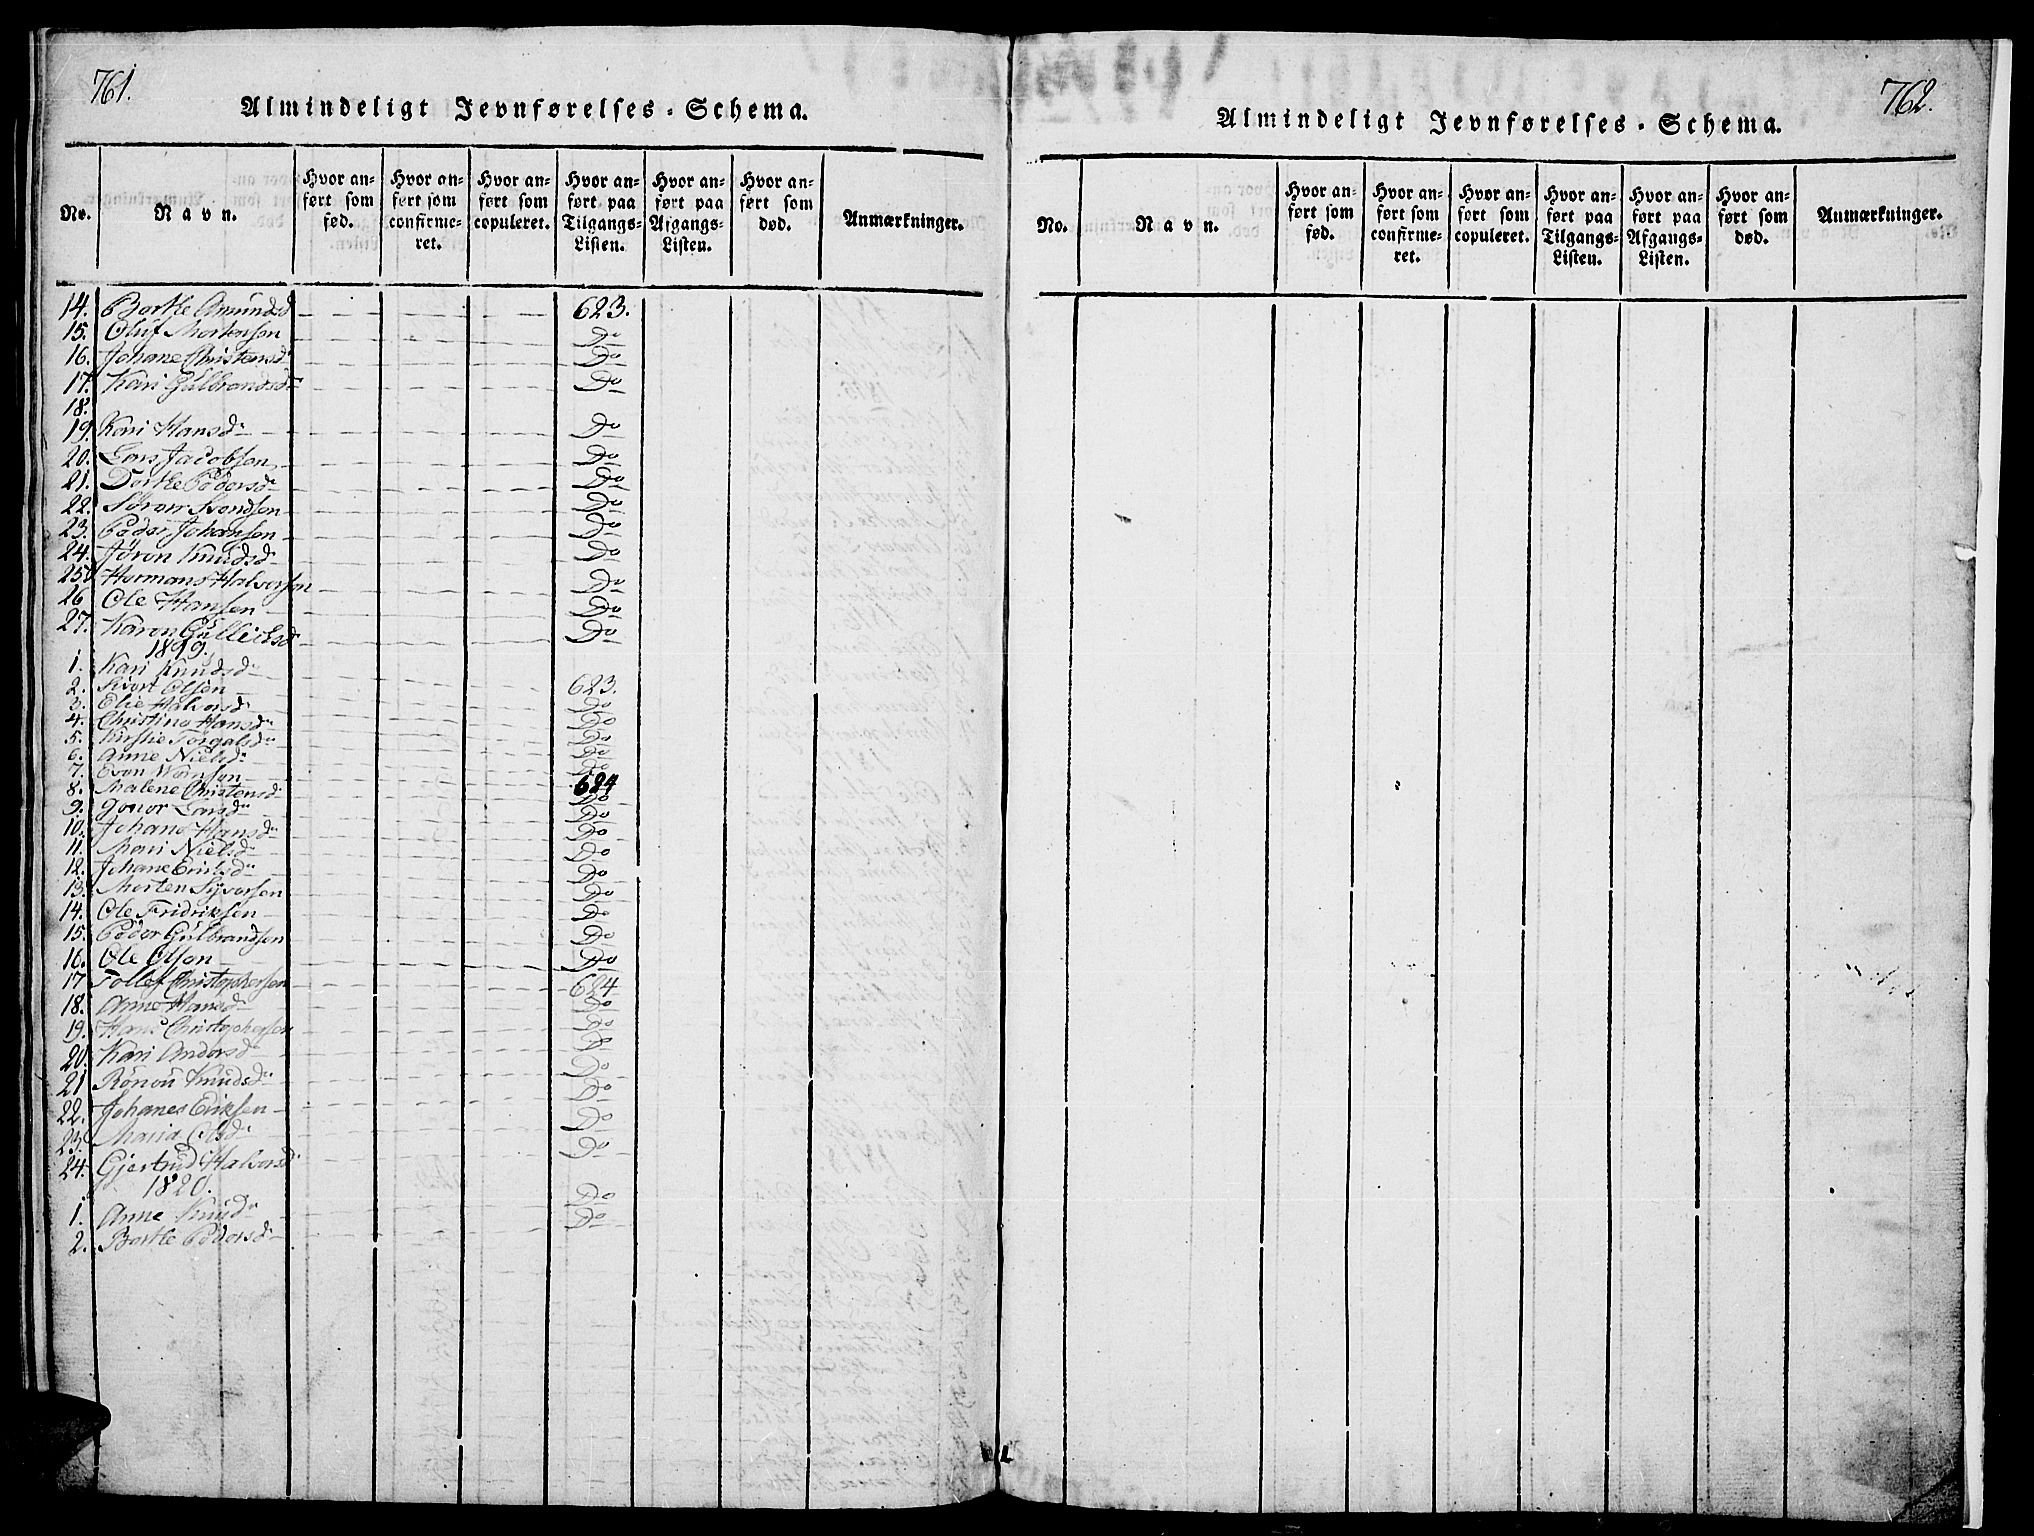 761.
Almindeligt Jevnførelses-Schema.
No. Navn. Hvor anført som fød. Hvor anført som confirmeret. Hvor anført som copuleret. Hvor anført paa Tilgangs-Listen. Hvor anført paa Afgangs-Listen. Hvor anført som død. Anmærkninger.
14. Berthe Amundsd 623.
15. Oluf Mortensen Do
16. Johane Christensd Do
17. Kari Gulbrandsd Do
18.
19. Kari Hansd Do
20. Lars Jacobsen Do
21. Dorthe Pedersd Do
22. Søren Svendsen Do
23. Peder Johansen Do
24. Jøron Knudsd Do
25. Hermans Halvorsen Do
26 Ole Hansen Do
27. Karen Gullichsd Do
1819.
1. Kari Knudsd
2. Sivert Olsen 623.
3. Elie Halvorsd Do
4. Christine Hansd Do
5. Kirstie Torgalsd Do
6. Anne Nielsd Do
7. Even Do
8. Malene Christensd 624
9. Gonor Larsd Do
10. Johane Hansd Do
11. Mari Nielsd Do
12. Johane Do
13. Morten Syversen Do
14. Ole Fridriksen Do
15. Peder Gulbrandsen Do
16. Ole Olsen Do
17 Tollef Christophersen 624
18. Anne Hansd Do
19. Hans Christophersen Do
20. Kari Andersd Do
21 Rønnou Knudsd Do
22. Johanes Eriksen Do
23. Maria Olsd Do
24. Gjertrud Halvorsd Do
1820.
1. Anne Knudsd Do
2. Berthe Pedersd Do
762.
Almindeligt Jevnførelses-Schema.
No. Navn. Hvor anført som fød. Hvor anført som confirmeret. Hvor anført som copuleret. Hvor anført paa Tilgangs-Listen. Hvor anført paa Afgangs-Listen. Hvor anført som død. Anmærkninger.